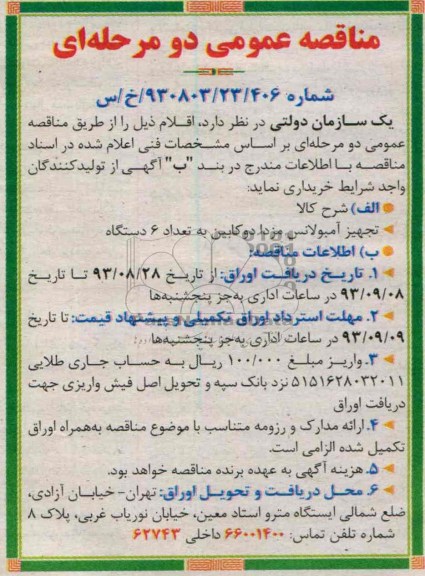 مناقصه عمومی دو مرحله‌ای
شماره ۹۳۰۸۰۳/۲۳/۴۰۶/خ/س
یک سازمان دولتی در نظر دارد، اقلام ذیل را از طریق مناقصه
عمومی دو مرحله‌ای بر اساس مشخصات فنی اعلام شده در اسناد
مناقصه بـا اطلاعات مندرج در بنـد "ب" آگهـی از تولیدکنندگان
واجد شرایط خریداری نماید:
الف) شرح کالا
تجهیز آمبولانس مزدا دوکابین به تعداد ۶ دستگاه
ب) اطلاعات مناقصه:
۱. تاریخ دریافت اوراق: از تاریخ ۹۳/۰۸/۲۸ تـا تاریخ
۹۳/۰۹/۰۸ در ساعات اداری به‌جز پنجشنبه‌ها
۲. مهلت استرداد اوراق تکمیلی و پیشنهاد قیمت: تا تاریخ
۹۳/۰۹/۰۹ در ساعات اداری به‌جز پنجشنبه‌ها
۳. واریـز مبلـغ ۱۰۰/۰۰۰ ریـال بـه حسـاب جـاری طلایـی
۵۱۵۱۶۲۸۰۳۲۰۱۱ نزد بانک سپه و تحویل اصل فیش واریزی جهت
دریافت اوراق
۴. ارائه مدارک و رزومه متناسب با موضوع مناقصه به‌همراه اوراق
تکمیل شده الزامی است.
۵. هزینه آگهی به عهده برنده مناقصه خواهد بود.
۶. محـل دریافـت و تحویـل اوراق: تهران- خیابـان آزادی،
ضلع شمالی ایستگاه مترو استاد معین، خیابان نوریاب غربی، پلاک ۸
شماره تلفن تماس: ۶۶۰۰۱۴۰۰ داخلی ۶۲۷۴۳